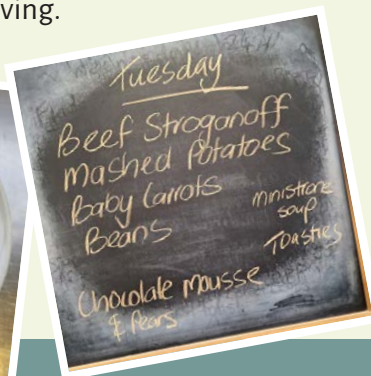 ving.
Tuesday
Beef Stroganoff
Mashed Potatoes
Baby Carrots
Beans
ministrone
soup
Toasties
Chocolate Mousse
& Pears